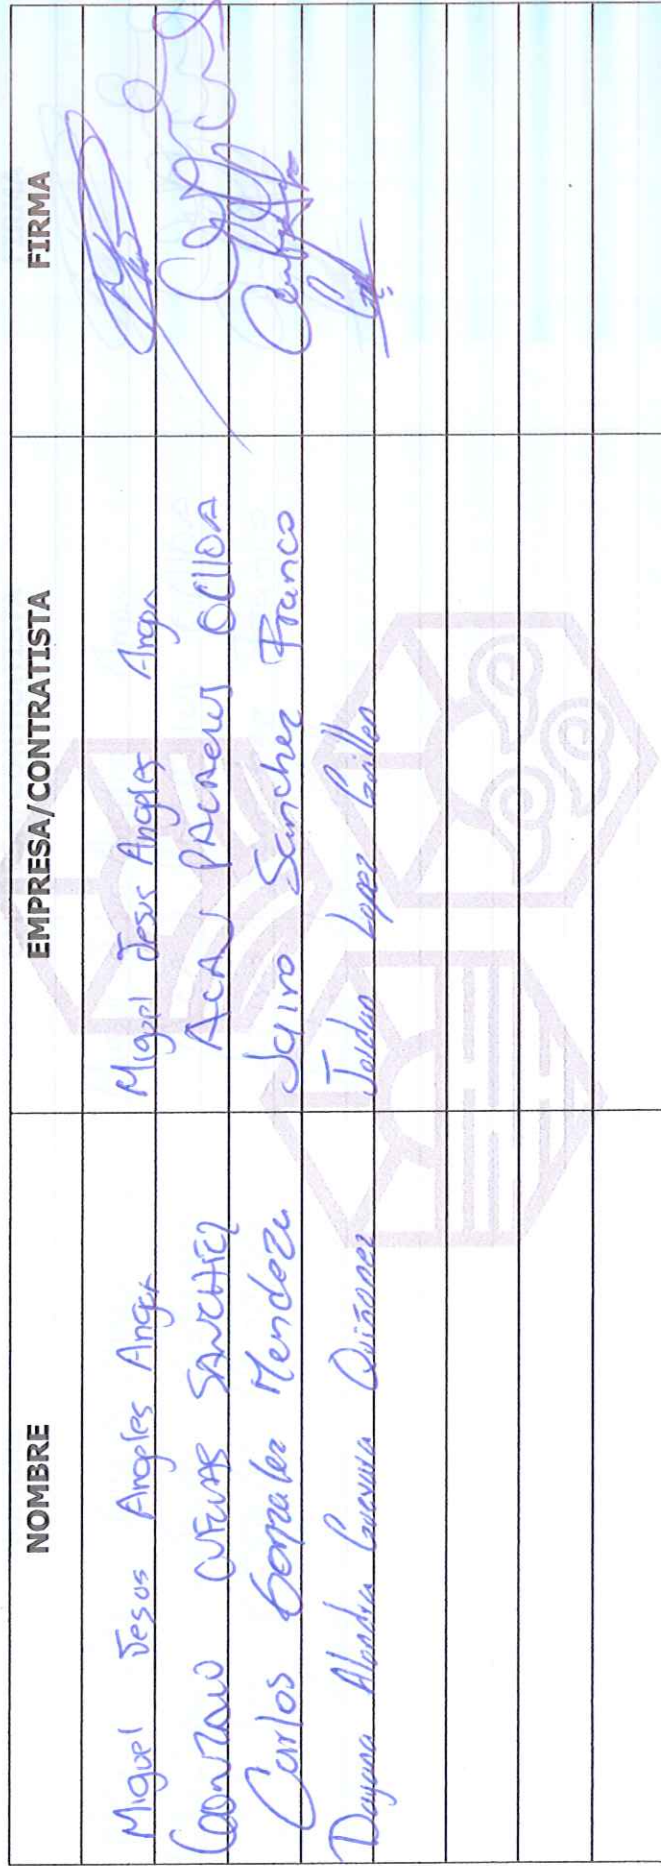 NOMBRE EMPRESA/CONTRATISTA FIRMA
Miguel Jesus Angeles Miguel Jesus Angeles
Gonzalo CUEVAS SANCHEZ PACHECO OCHOA
Carlos Gonzalez Mendoza Jairo Sanchez Franco
Dayana Guevara Quiñonez Lopez